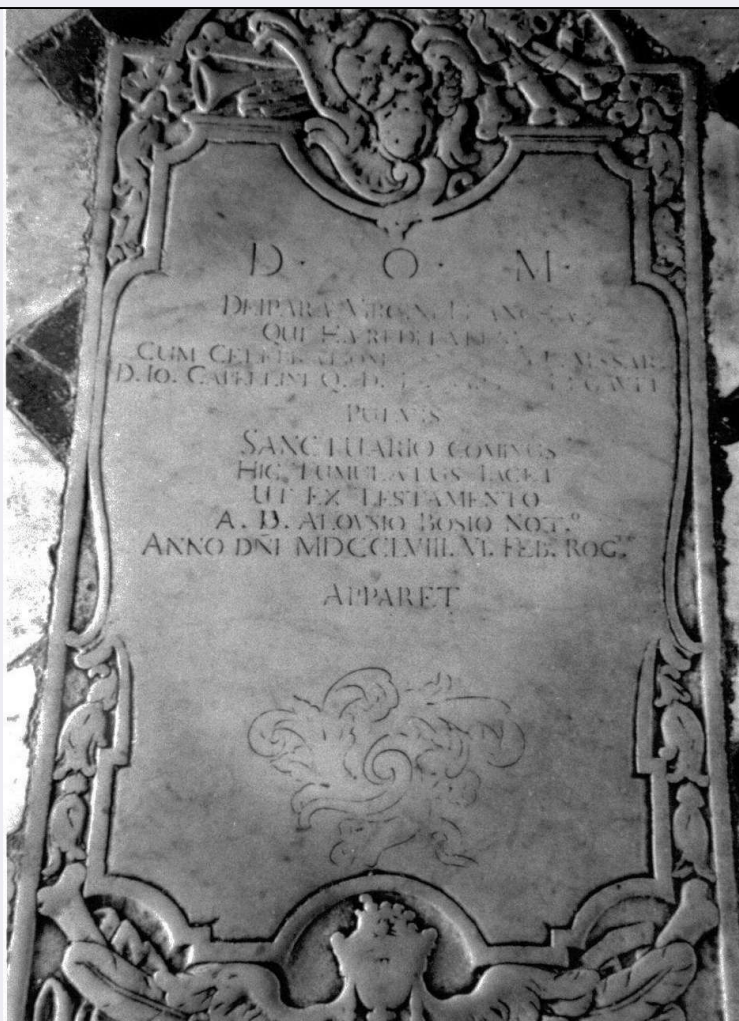 D · O · M ·
DEIPARÆ VIRGINI
QUI
CUM CELEBRATIONE MISSAR.
D. IO. CAPELLINI Q. D. LEGAVIT
PULVIS
SANCTUARIO COMINUS
HIC TUMULATUS IACET
UT EX TESTAMENTO
A. D. ALOYSIO BOSIO NOT.º
ANNO DÑI MDCCLVIII. VI. FEB. ROG.
APPARET